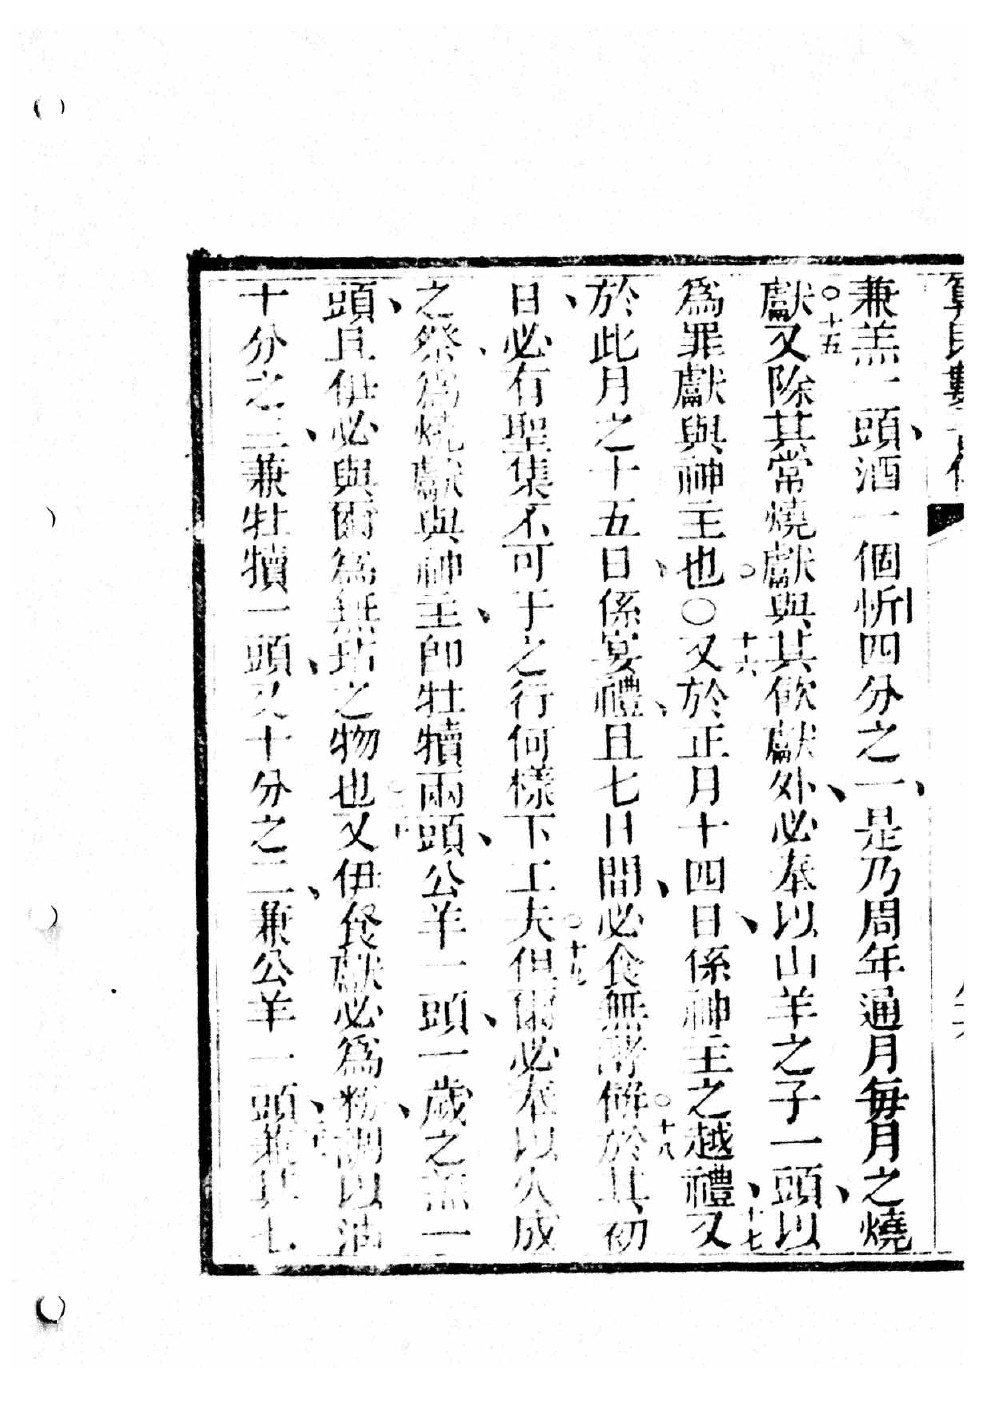 兼羔一頭酒一個忻四分之一是乃周年通月每月之燒
獻○十五又除其常燒獻與其飲獻外必奉以山羊之子一頭以
為罪獻與神主也○十六又於正月十四日係神主之越禮十七又
於此月之十五日係宴禮且七日間必食無酵餅十八於其初
日必有聖集不可于之行何樣下工夫十九但爾必奉以火成
之祭為燒獻與神主即牡犢兩頭公羊一頭一歲之羔一
頭且伊必與爾為無玷之物也又伊食獻必為粉調以油
十分之三兼牡犢一頭又十分之二兼公羊一頭兼其七